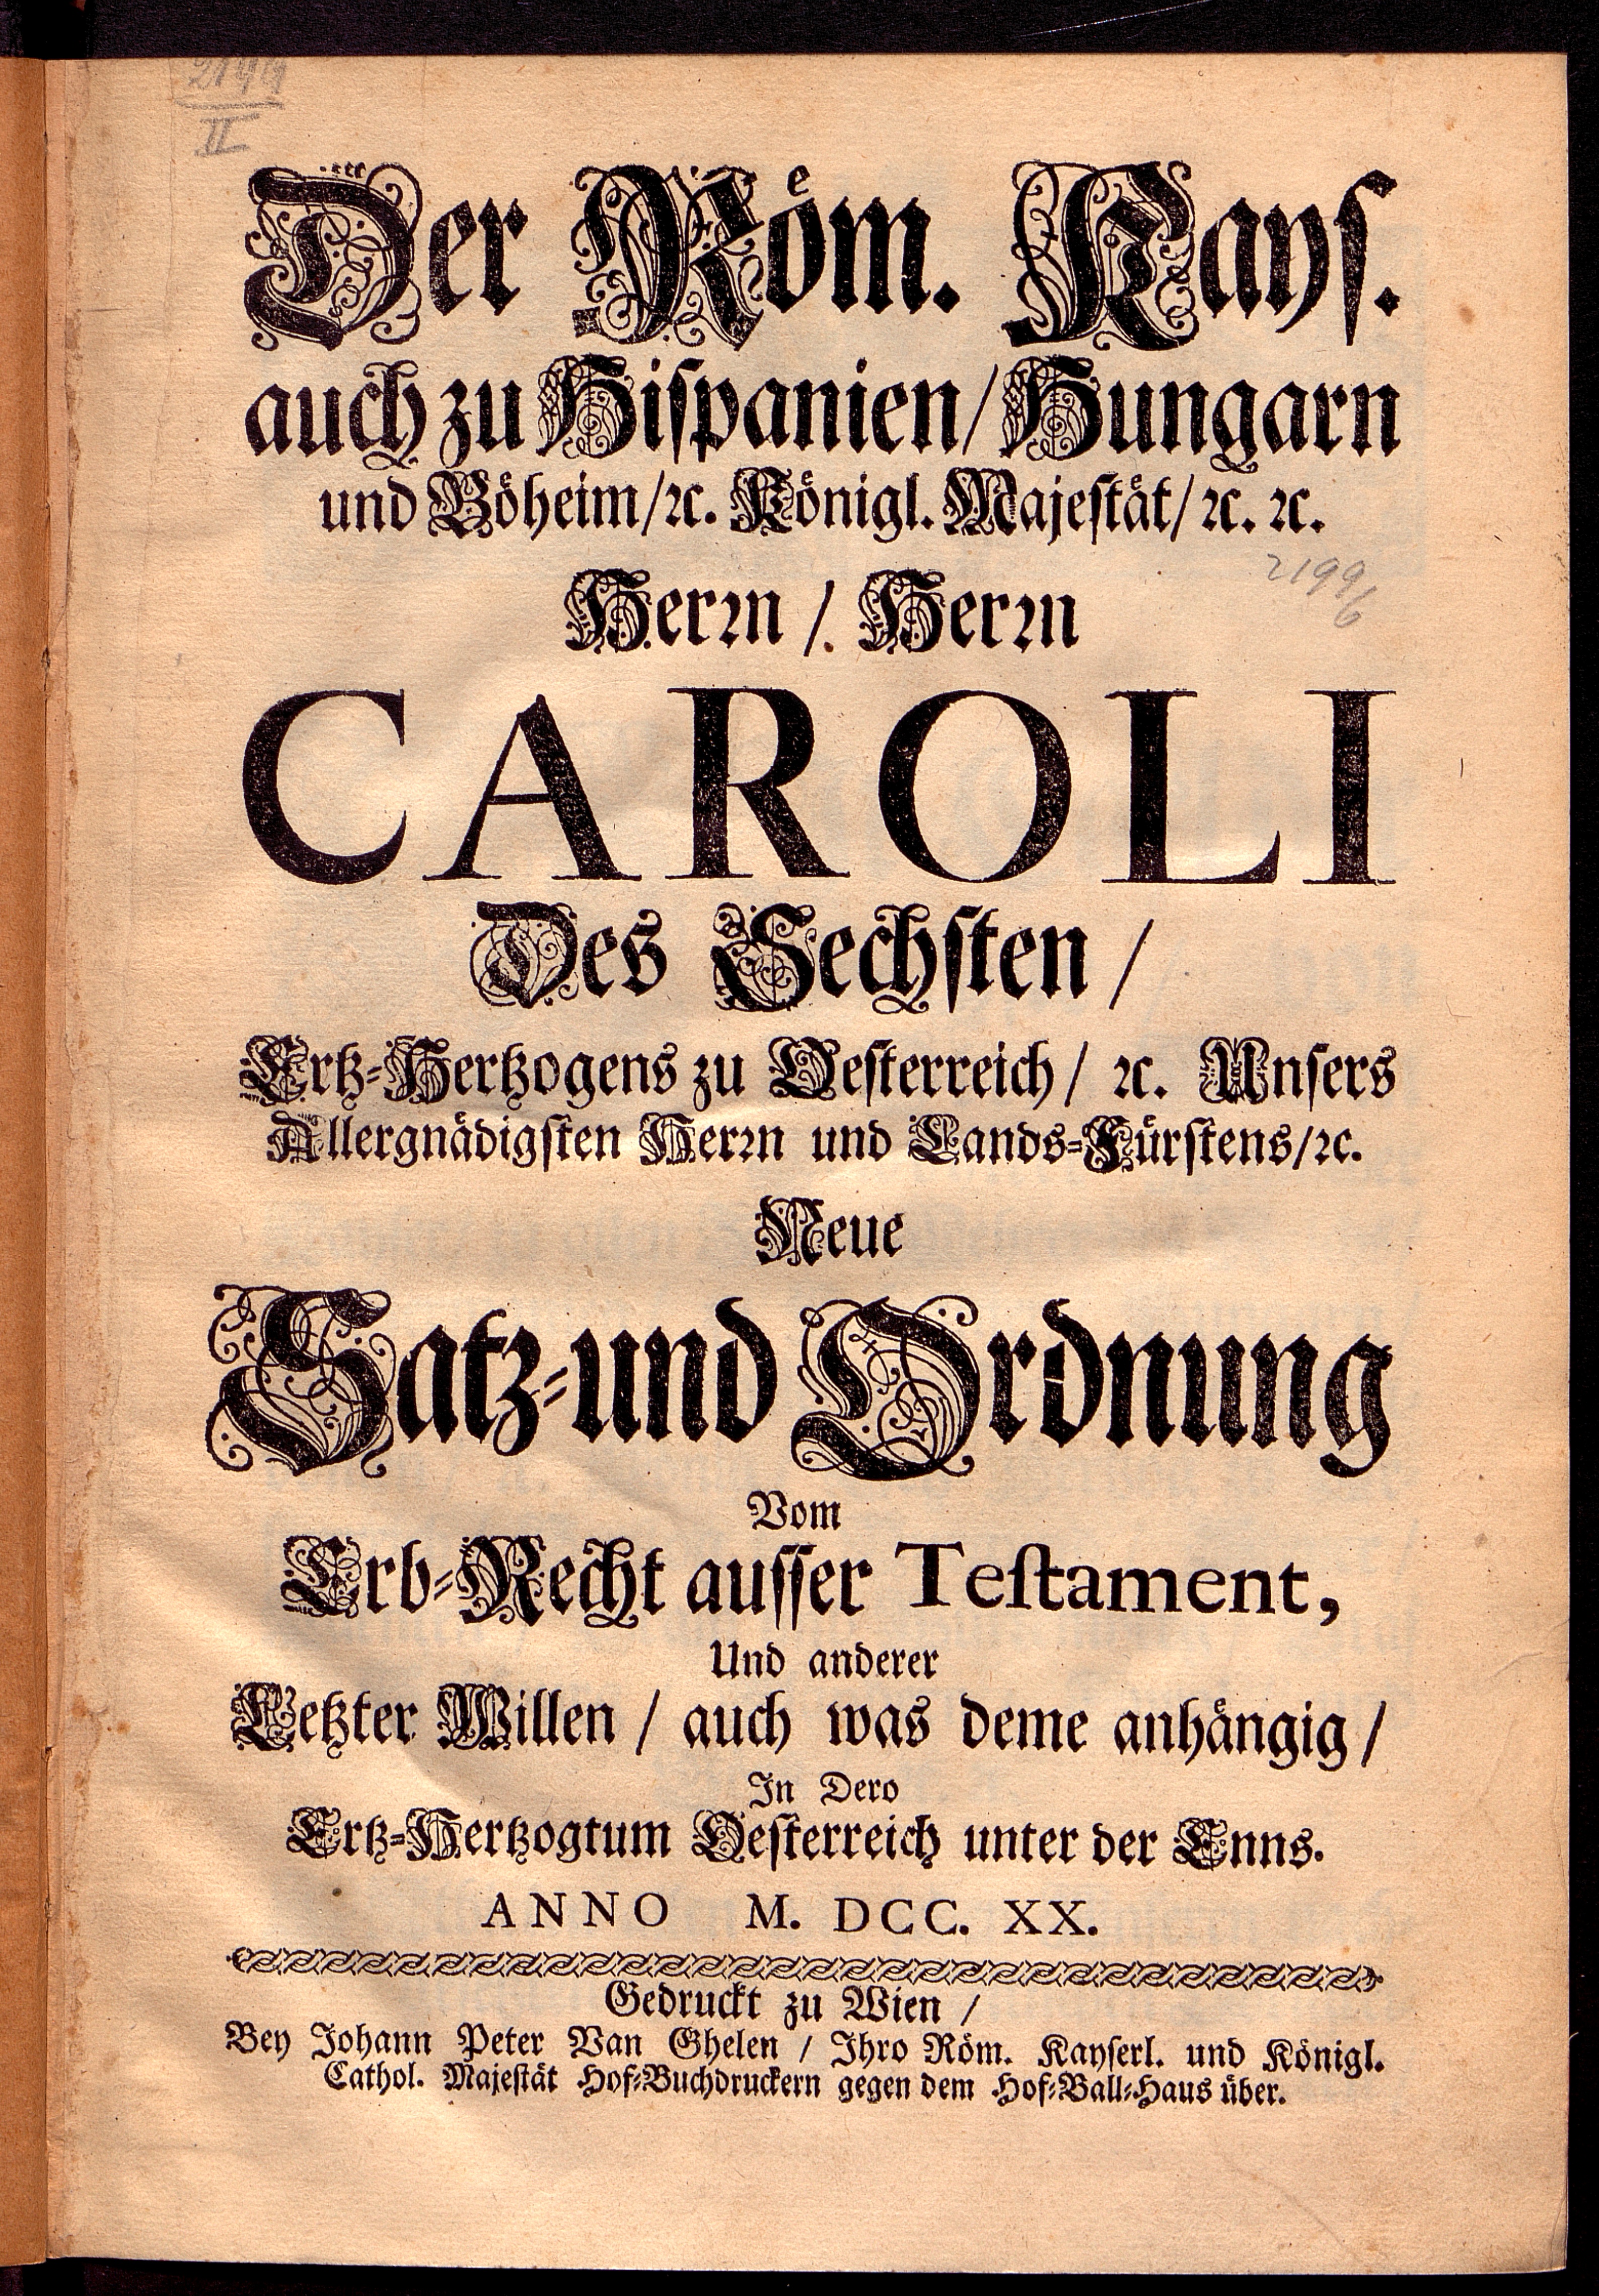 2199
II
Der Röm. Kays.
auch zu Hispanien/ Hungarn
und Böheim/ ꝛc. Königl. Majestät/ ꝛc. ꝛc.
2199/6
Herꝛn / Herꝛn
CAROLI
Des Sechsten /
Ertz-Hertzogens zu Oesterreich / ꝛc. Unsers
Allergnädigsten Herꝛn und Lands-Fürstens/ ꝛc.
Neue
Satz- und Ordnung
Vom
Erb-Recht ausser Testament,
Und anderer
Letzter Willen / auch was deme anhängig /
In Dero
Ertz-Hertzogtum Oesterreich unter der Enns.
ANNO M. DCC. XX.
Gedruckt zu Wien /
Bey Johann Peter Van Ghelen / Ihro Röm. Kayserl. und Königl.
Cathol. Majestät Hof-Buchdruckern gegen dem Hof-Ball-Haus über.